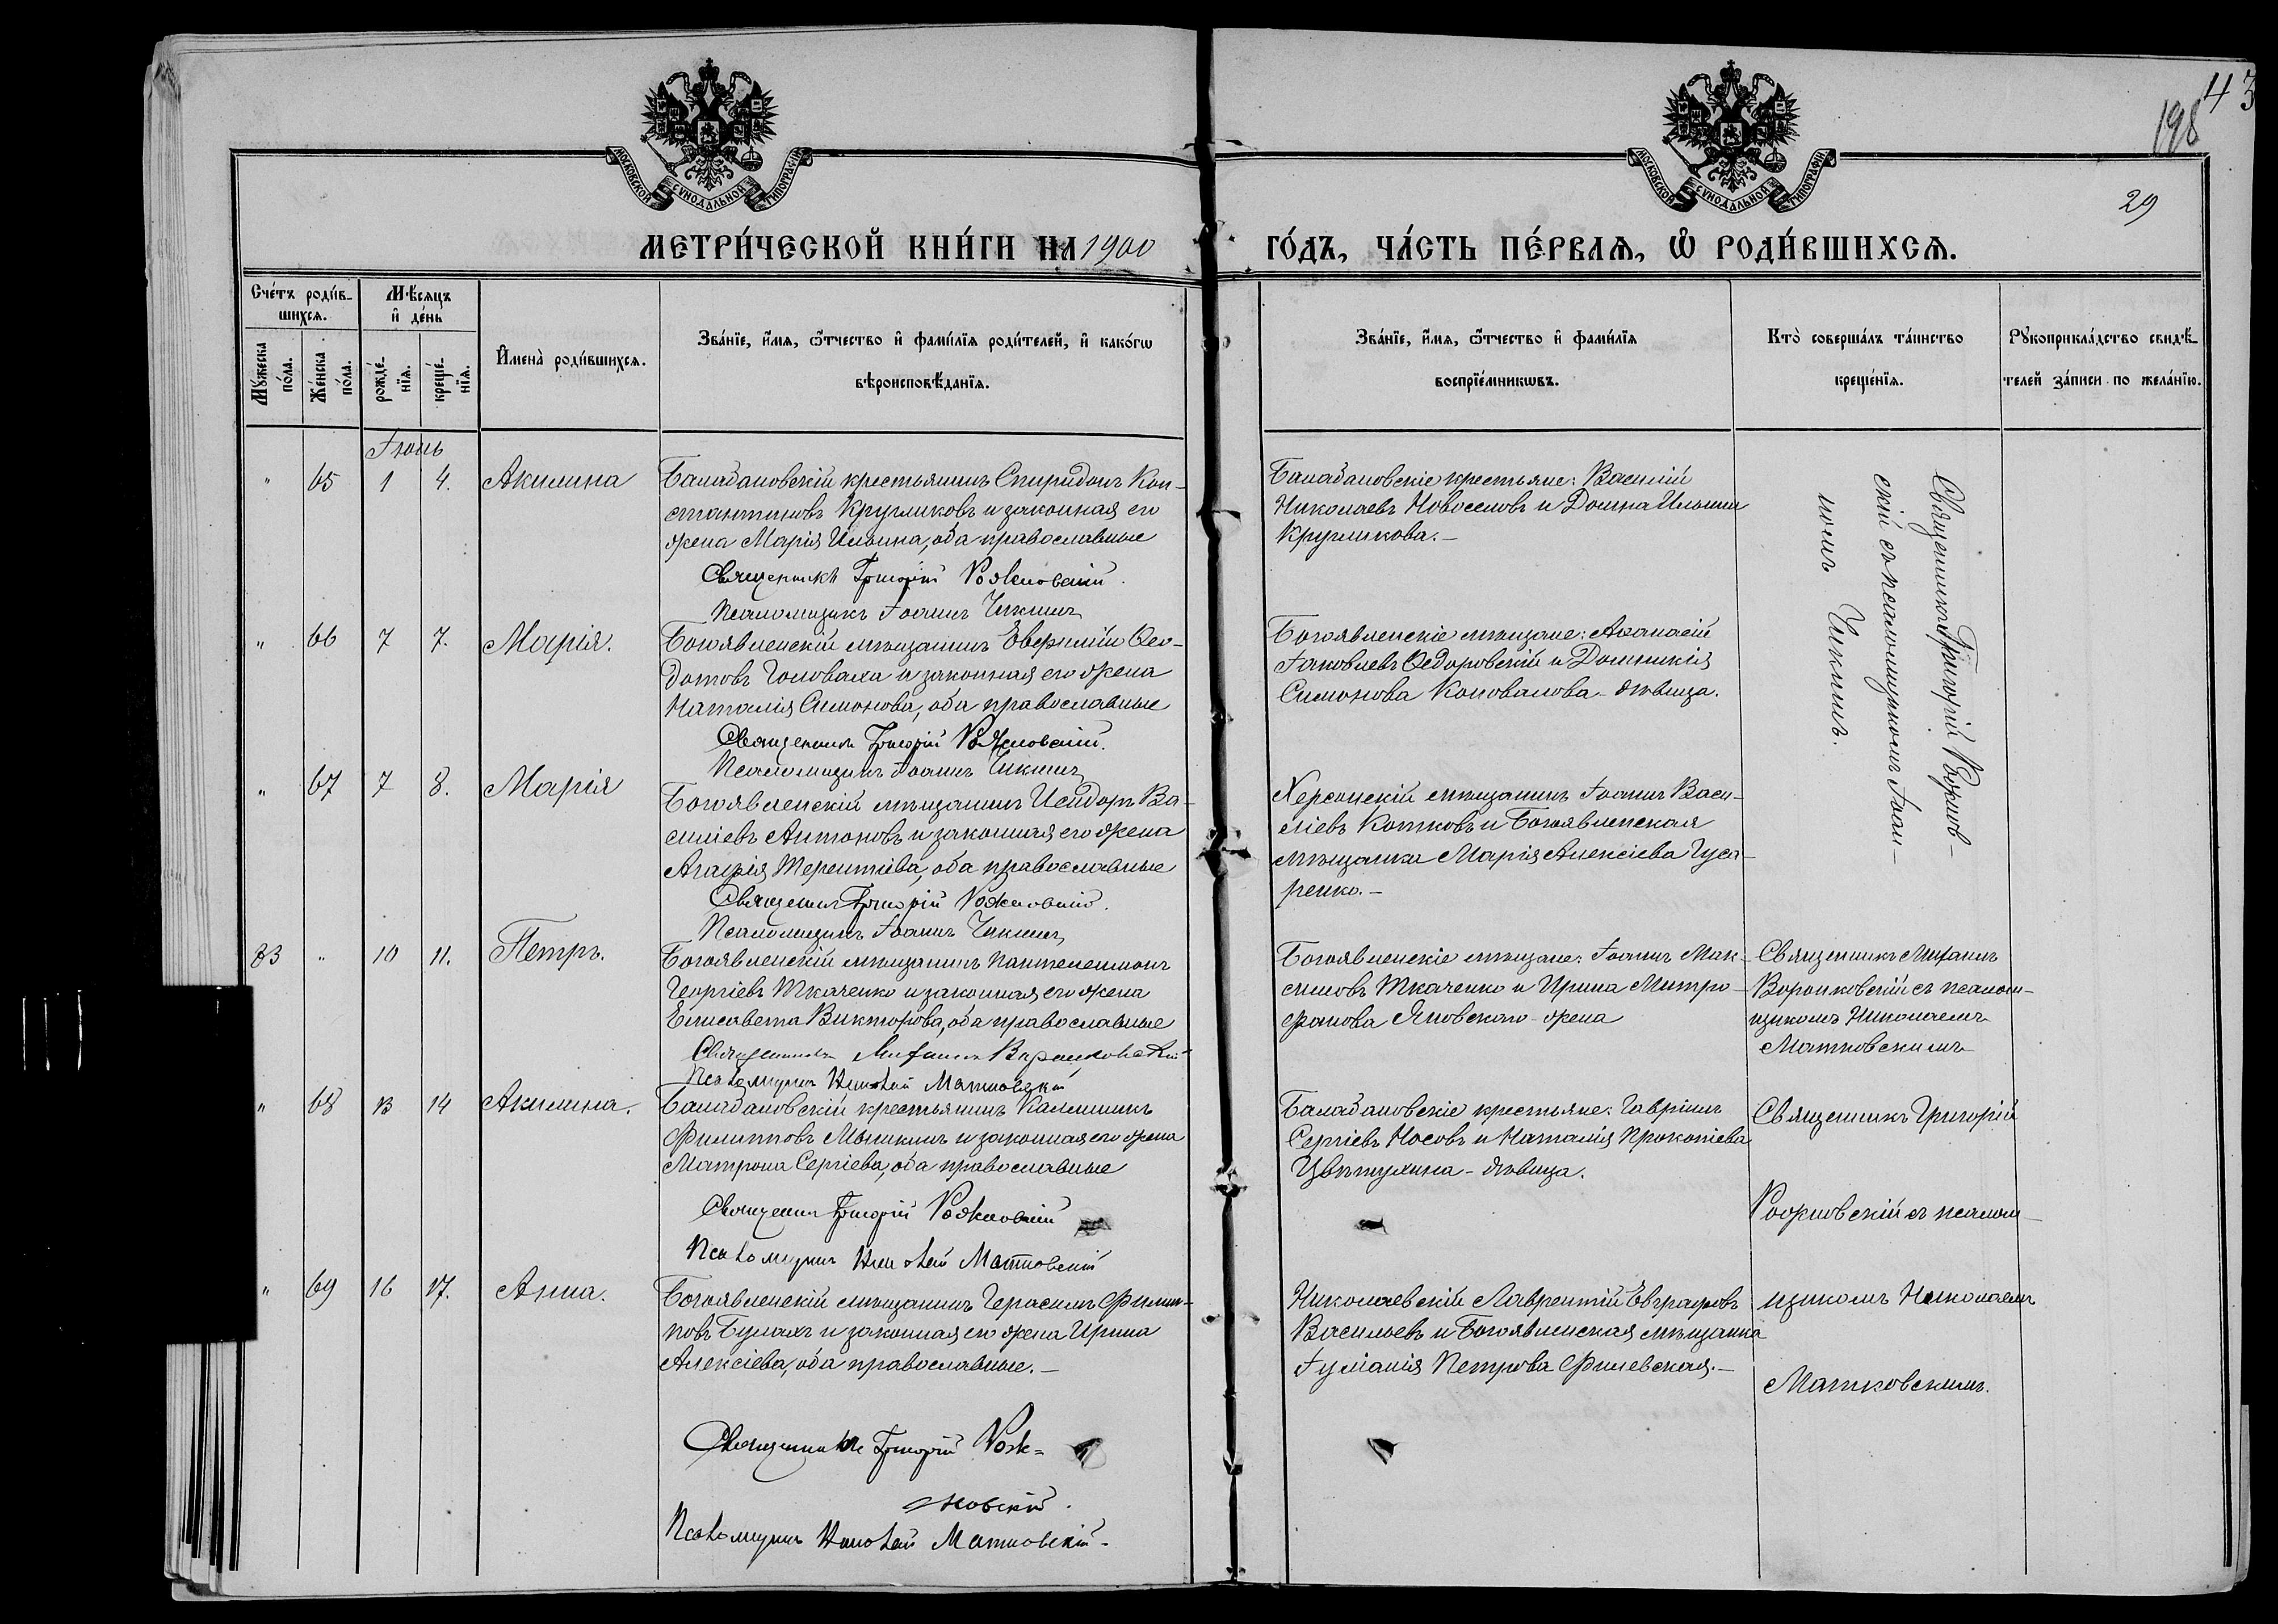 43
198
29
МОСКОВСКОЙ СѴНОДАЛЬНОЙ ТИПОГРАФІИ
МОСКОВСКОЙ СѴНОДАЛЬНОЙ ТИПОГРАФІИ
МЕТРИ́ЧЕСКОЙ КНИ́ГИ НА 1900
ГО́ДЪ, ЧА́СТЬ ПЕ́РВАѦ, Ѡ҆ РОДИ́ВШИХСѦ.
Сче́тъ роди́в-
шихсѧ.
Мѣ́сяцъ
и҆ де́нь
Мꙋ́жеска
по́ла.
Же́нска
по́ла.
рожде́-
нїѧ.
креще́-
нїѧ.
И҆мена̀ роди́вшихсѧ.
Зва́нїе, и҆́мѧ, ѻ҆́тчество и҆ фами́лїѧ роди́телей, и҆ како́гѡ
вѣроисповѣ́данїѧ.
Зва́нїе, и҆́мѧ, ѻ҆́тчество и҆ фами́лїѧ
воспрїе́мникѡвъ.
Кто̀ соверша́лъ та́инство
креще́нїѧ.
Рꙋкоприкла́дство свидѣ́-
телей за́писи по жела́нїю.
Іюнь
" 65 1 4. Акилина
Баладановскій крестьянинъ Спиридонъ Кон-
стантиновъ Кругликовъ и законная его
жена Марія Ильина, оба православные
Священникъ Григорій Рожновскій.
Псаломщикъ Іоаннъ Чикинъ
Баладановскіе крестьяне: Василій
Николаевъ Новоселовъ и Домна Ильина
Кругликова.—
Священникъ Григорій Рожнов-
скій съ псаломщикомъ Іоан-
номъ Чикинъ.
" 66 7 7. Марія.
Богоявленскій мѣщанинъ Евфимій Ѳео-
дотовъ Головаха и законная его жена
Наталія Симонова, оба православные
Священникъ Григорій Рожновскій.
Псаломщикъ Іоаннъ Чикинъ
Богоявленскіе мѣщане: Аѳанасій
Іаковлевъ Ѳедоровскій и Домникія
Симонова Коновалова - дѣвица.
" 67 7 8. Марія
Богоявленскій мѣщанинъ Исидоръ Ва-
силіевъ Антоновъ и законная его жена
Агафія Терентіева, оба православные
Священникъ Григорій Рожновскій.
Псаломщикъ Іоаннъ Чикинъ
Херсонскій мѣщанинъ Іоаннъ Васи-
ліевъ Котковъ и Богоявленская
мѣщанка Марія Алексіева Гуса-
ренко.—
83 " 10 11. Петръ.
Богоявленскій мѣщанинъ Пантелеимонъ
Георгіевъ Ткаченко и законная его жена
Елисавета Викторова, оба православные
Священникъ Михаилъ Воронковскій
Псаломщикъ Николай Матковскій
Богоявленскіе мѣщане: Іоаннъ Мак-
симовъ Ткаченко и Ирина Митро-
фанова Яновскаго - жена
Священникъ Михаилъ
Воронковскій съ псалом-
щикомъ Николаемъ
Матковскимъ
" 68 13 14 Акилина.
Баладановскій крестьянинъ Каллиникъ
Филипповъ Мыникинъ и законная его жена
Матрона Сергіева, оба православные
Священникъ Григорій Рожновскій
Псаломщикъ Николай Матковскій
Баладановскіе крестьяне: Гавріилъ
Сергіевъ Носовъ и Наталія Прокопіева
Цвѣтухина - дѣвица.
Священникъ Григорій
Рожновскій съ псалом-
" 69 16 17. Анна.
Богоявленскій мѣщанинъ Герасимъ Филип-
повъ Булахъ и законная его жена Ирина
Алексіева, оба православные.—
Священникъ Григорій Рож-
новскій.
Псаломщикъ Николай Матковскій.
Николаевскій Лаврентій Евграфовъ
Васильевъ и Богоявленская мѣщанка
Іуліанія Петрова Филевская.—
щикомъ Николаемъ
Матковскимъ.